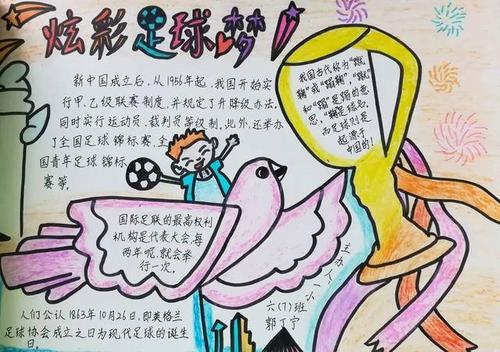 炫彩足球梦！
新中国成立后，从1956年起，我国开始实
行甲、乙级联赛制度，并规定了升降级办法，
同时实行运动员、裁判员等级制。此外，还举办
了全国足球锦标赛、全
国青年足球锦标
赛等。
我国古代称为“蹴
鞠”或“蹋鞠”，“蹴”
和“蹋”是踢的意
思，“鞠”是球名，
而足球则是
起源于
中国的！
国际足联的最高权利
机构是代表大会，每
两年呢，就会举
行一次。
人们公认1863年10月26日，即英格兰
足球协会成立之日为现代足球的诞生
日。
六(7)班
郭丁宁